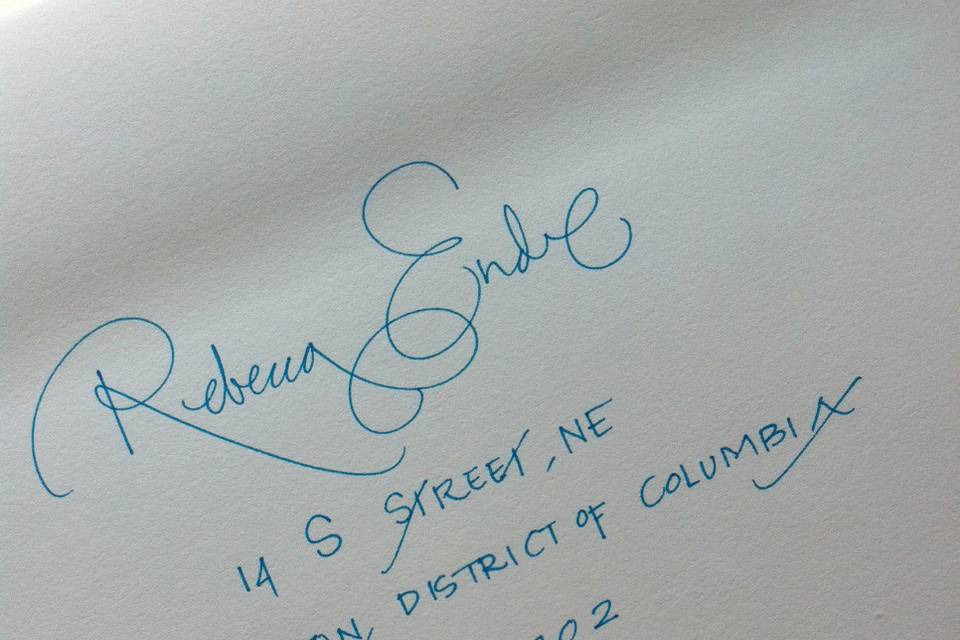 Rebecca Endre
14 S STREET, NE
ON, DISTRICT OF COLUMBIA
02